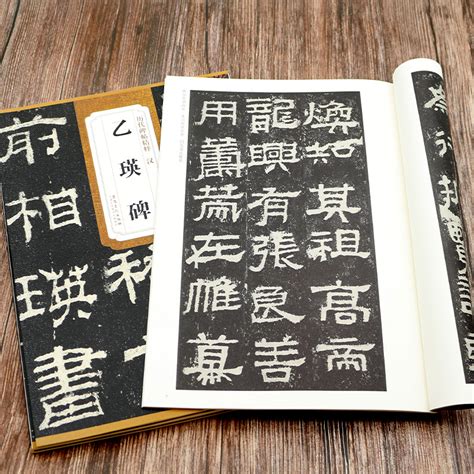 煥知其祖高帝
龍興有張良善
用籌策在帷幕
历代碑帖精粹 汉
乙瑛碑
前相瑛書